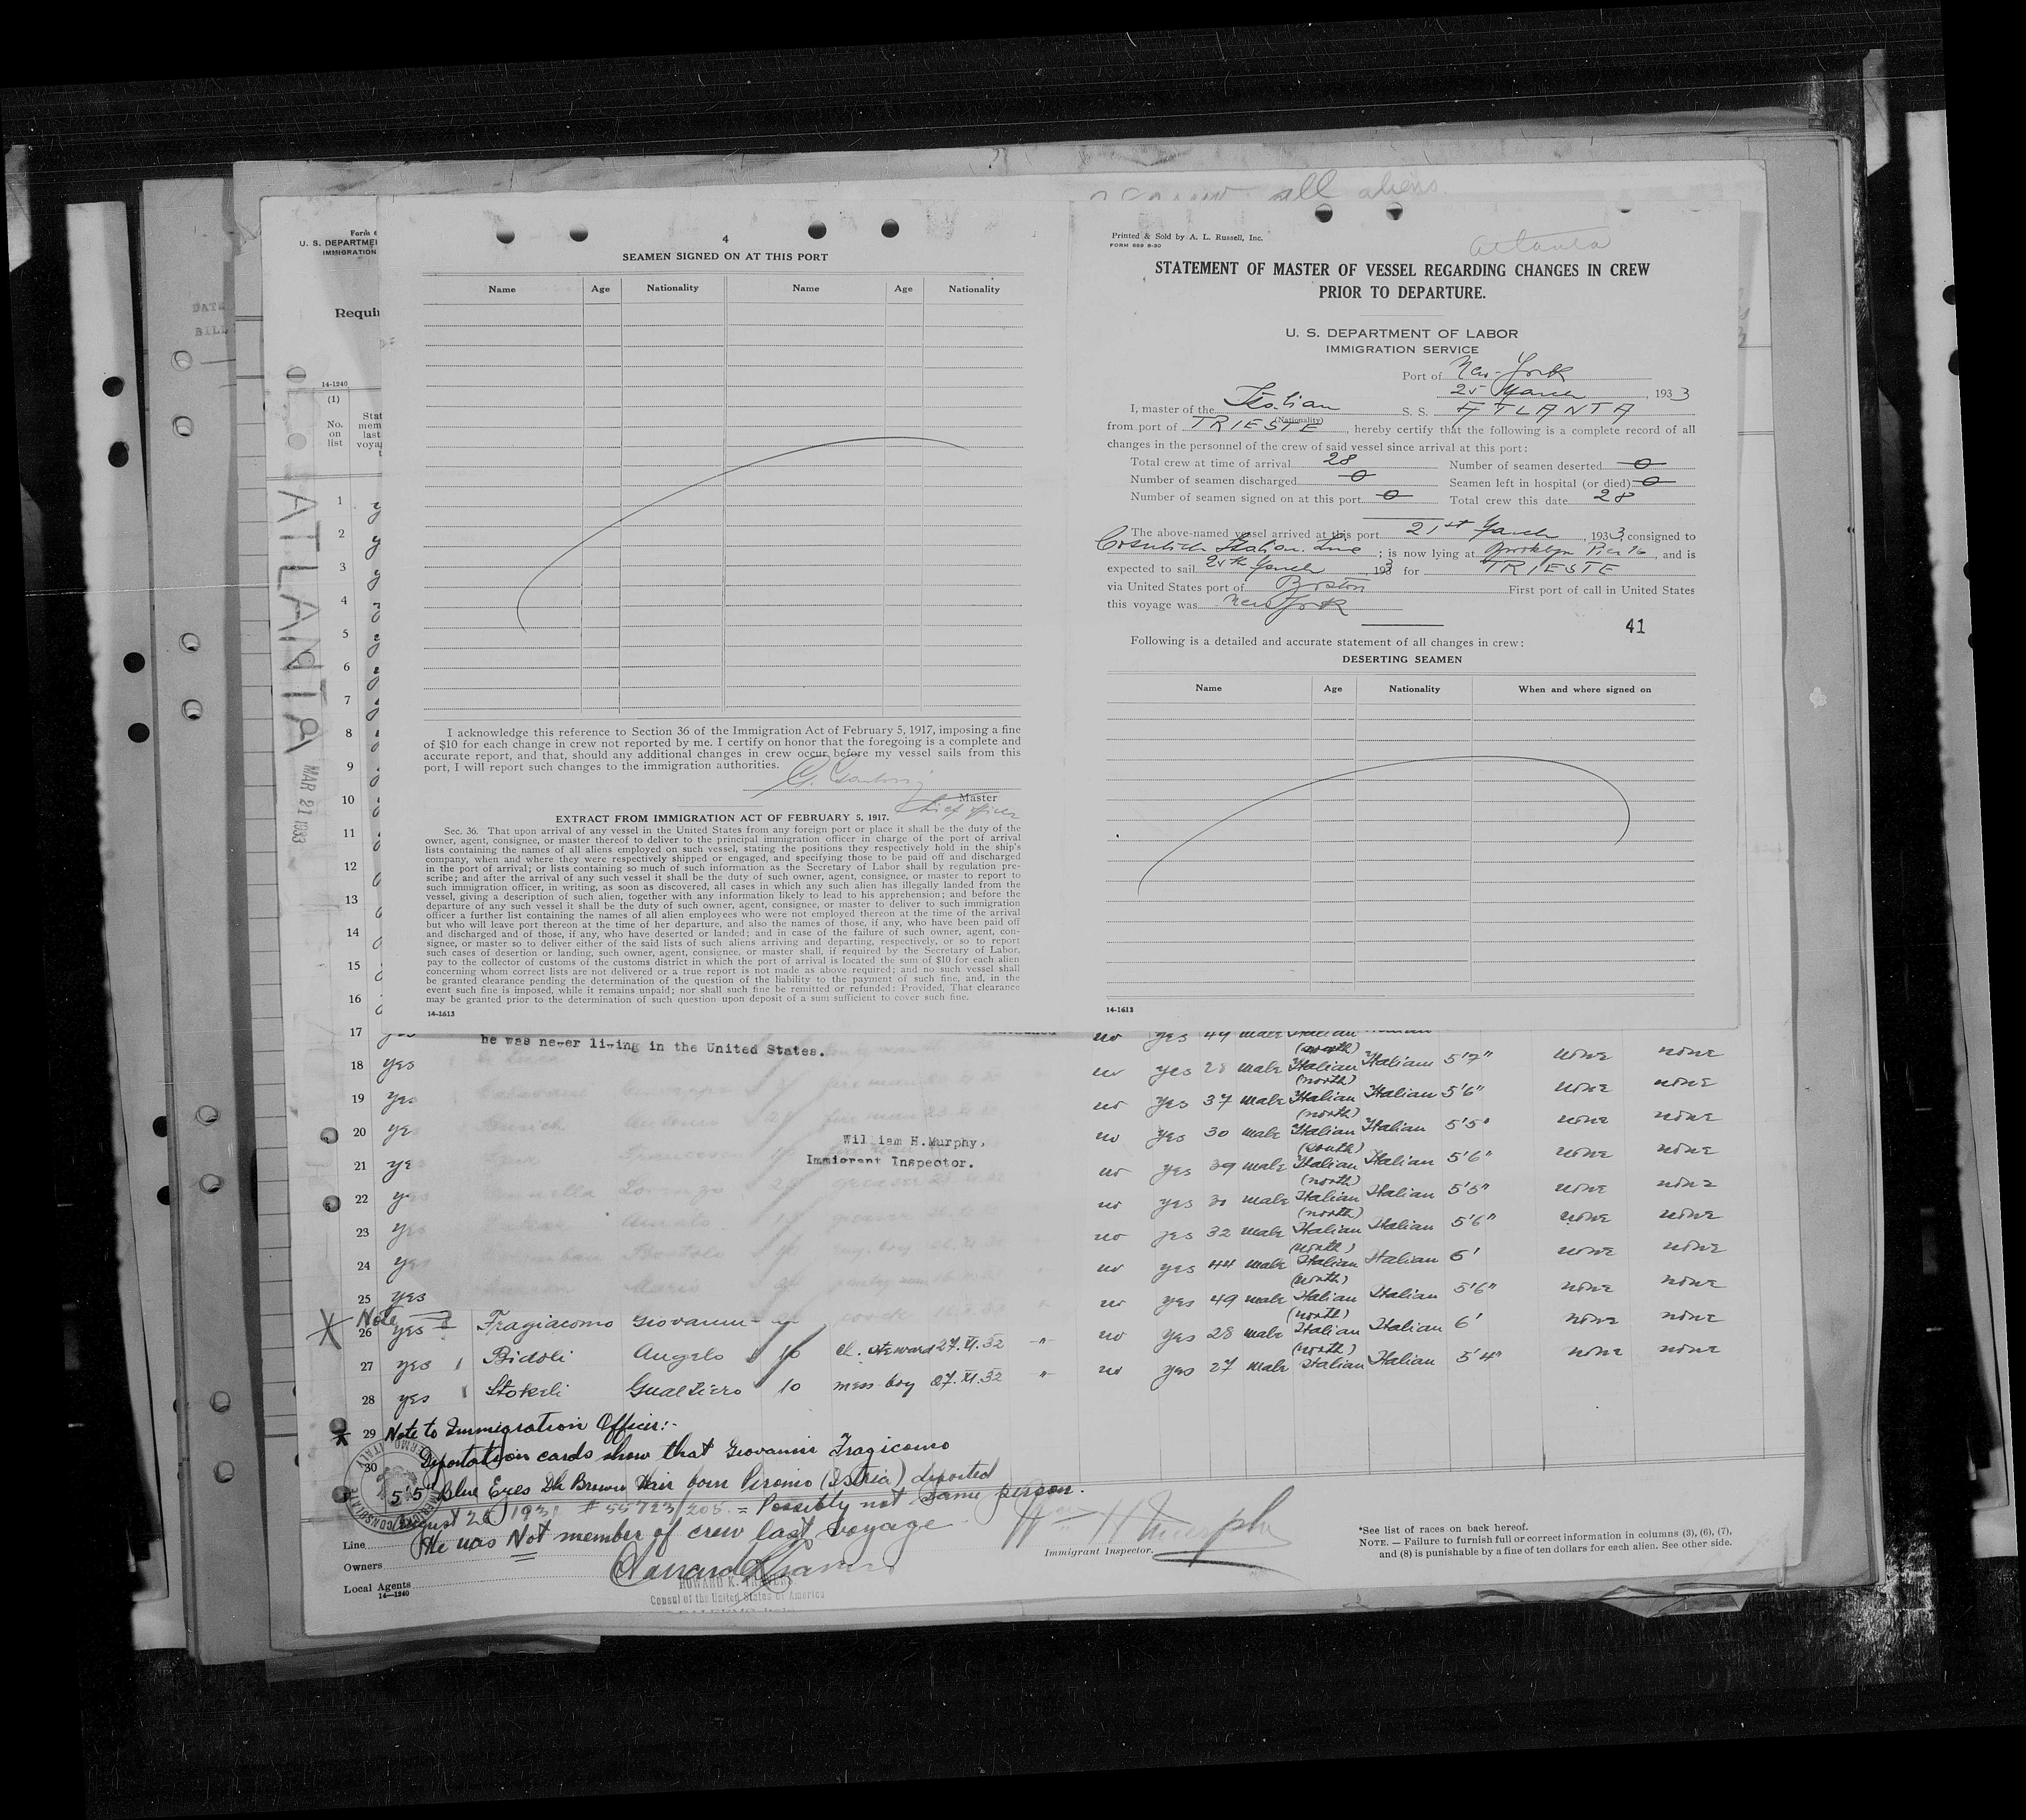 all aliens.
DATE
BILL
Form 6
U. S. DEPARTME
IMMIGRATION
Requi
14-1240
(1)
No. on list
Stat
mem
last
voya
ATLANTA
MAR 21 1933
1
2
3
4
5
6
7
8
9
10
11
12
13
14
15
16
4
SEAMEN SIGNED ON AT THIS PORT
Name Age Nationality Name Age Nationality
I acknowledge this reference to Section 36 of the Immigration Act of February 5, 1917, imposing a fine
of $10 for each change in crew not reported by me. I certify on honor that the foregoing is a complete and
accurate report, and that, should any additional changes in crew occur before my vessel sails from this
port, I will report such changes to the immigration authorities.
Master
Chief officer
EXTRACT FROM IMMIGRATION ACT OF FEBRUARY 5, 1917.
Sec. 36. That upon arrival of any vessel in the United States from any foreign port or place it shall be the duty of the
owner, agent, consignee, or master thereof to deliver to the principal immigration officer in charge of the port of arrival
lists containing the names of all aliens employed on such vessel, stating the positions they respectively hold in the ship's
company, when and where they were respectively shipped or engaged, and specifying those to be paid off and discharged
in the port of arrival; or lists containing so much of such information as the Secretary of Labor shall by regulation pre-
scribe; and after the arrival of any such vessel it shall be the duty of such owner, agent, consignee, or master to report to
such immigration officer, in writing, as soon as discovered, all cases in which any such alien has illegally landed from the
vessel, giving a description of such alien, together with any information likely to lead to his apprehension; and before the
departure of any such vessel it shall be the duty of such owner, agent, consignee, or master to deliver to such immigration
officer a further list containing the names of all alien employees who were not employed thereon at the time of the arrival
but who will leave port thereon at the time of her departure, and also the names of those, if any, who have been paid off
and discharged and of those, if any, who have deserted or landed; and in case of the failure of such owner, agent, con-
signee, or master so to deliver either of the said lists of such aliens arriving and departing, respectively, or so to report
such cases of desertion or landing, such owner, agent, consignee, or master shall, if required by the Secretary of Labor,
pay to the collector of customs of the customs district in which the port of arrival is located the sum of $10 for each alien
concerning whom correct lists are not delivered or a true report is not made as above required; and no such vessel shall
be granted clearance pending the determination of the question of the liability to the payment of such fine, and, in the
event such fine is imposed, while it remains unpaid; nor shall such fine be remitted or refunded: Provided, That clearance
may be granted prior to the determination of such question upon deposit of a sum sufficient to cover such fine.
14-1613
Printed & Sold by A. L. Russell, Inc.
FORM 689 8-30
Atlanta
STATEMENT OF MASTER OF VESSEL REGARDING CHANGES IN CREW
PRIOR TO DEPARTURE.
U. S. DEPARTMENT OF LABOR
IMMIGRATION SERVICE
Port of New-York
25 March, 1933
I, master of the Italian S. S. ATLANTA
(Nationality)
from port of TRIESTE, hereby certify that the following is a complete record of all
changes in the personnel of the crew of said vessel since arrival at this port:
Total crew at time of arrival 28 Number of seamen deserted 0
Number of seamen discharged 0 Seamen left in hospital (or died) 0
Number of seamen signed on at this port 0 Total crew this date 28
The above-named vessel arrived at this port 21st March, 1933, consigned to
Cosulich Italian Line; is now lying at Brooklyn Pier 16, and is
expected to sail 25th March, 1933 for TRIESTE
via United States port of Boston First port of call in United States
this voyage was New York
41
Following is a detailed and accurate statement of all changes in crew:
DESERTING SEAMEN
Name Age Nationality When and where signed on
14-1613
17 yes no yes 49 male Italian
he was never living in the United States.
18 yes no yes 28 male Italian (north) Italian 5'7" none none
19 yes no yes 37 male Italian (north) Italian 5'6" none none
20 ye no yes 30 male Italian (north) Italian 5'5" none none
William H.Murphy,
Immigrant Inspector.
21 ye no yes 39 male Italian (south) Italian 5'6" none none
22 y no yes 30 male Italian (north) Italian 5'5" none none
23 ye no yes 32 male Italian (north) Italian 5'6" none none
24 ye no yes 44 male Italian (north) Italian 6' none none
25 yes no yes 49 male Italian (north) Italian 5'6" none none
Note
26 yes Fragiacomo Giovanni cook no yes 28 male Italian (north) Italian 6' none none
27 yes 1 Bidoli Angelo 16 ch. steward 27.XI.32 " no yes 27 male Italian (north) Italian 5'4" none none
28 yes 1 Stokeli Gualtiero 10 mess boy 27.XI.32 "
29 Note to Immigration Officer:-
30 Deportation cards show that Giovanni Fragicomo
5'5" Blue Eyes Dk Brown Hair born Pironio (Istria) deported
August 26 1931 # 55723/205 = Possibly not same person.
He was Not member of crew last voyage
Line
Owners
Local Agents
14-1240
HOWARD K. TRAVERS
Consul of the United States of America
Wm H Murphy
Immigrant Inspector.
*See list of races on back hereof.
NOTE. — Failure to furnish full or correct information in columns (3), (6), (7),
and (8) is punishable by a fine of ten dollars for each alien. See other side.